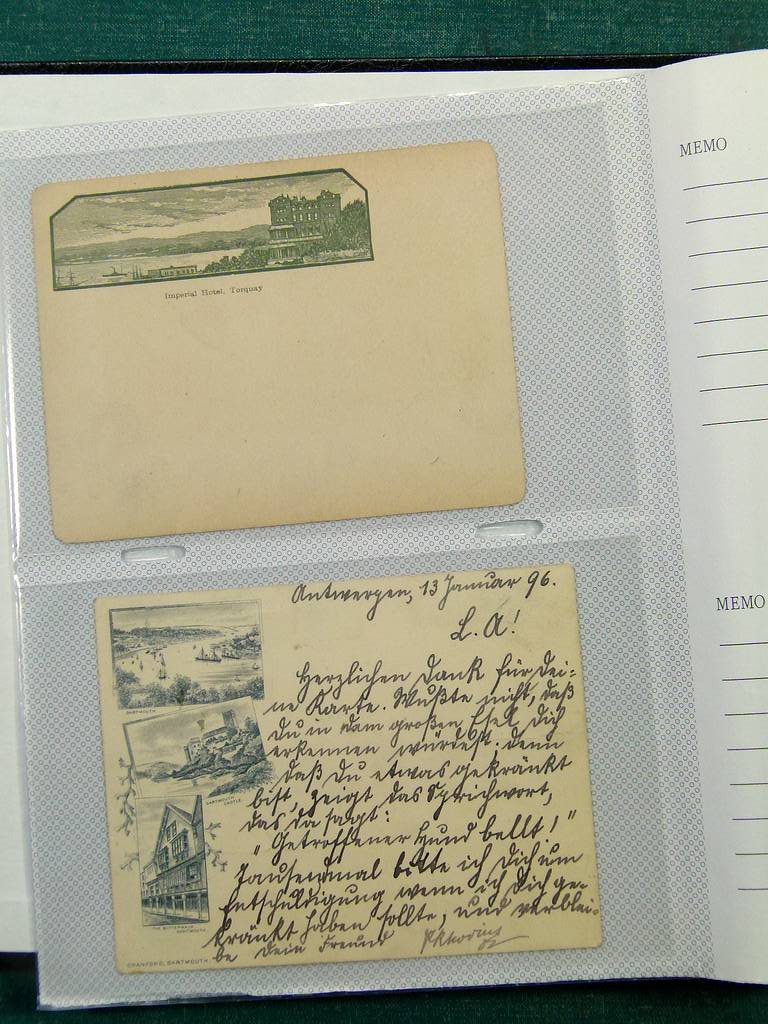 Imperial Hotel, Torquay
MEMO
Antwerpen, 13 Januar 96.
L. A!
Herzlichen Dank für Dei-
ne Karte. Wußte nicht, daß
Du in dem großen Esel, Dich
erkennen würdest; denn
daß Du etwas gekränkt
bist, zeigt das Sprichwort,
das da sagt:
"Getroffener Hund bellt!"
Tausendmal bitte ich Dich um
Entschuldigung, wenn ich Dich ge-
kränkt haben sollte, und verblei-
be Dein Freund
DARTMOUTH
DARTMOUTH
CASTLE.
THE BUTTERWALK
DARTMOUTH.
CRANFORD, DARTMOUTH.
MEMO